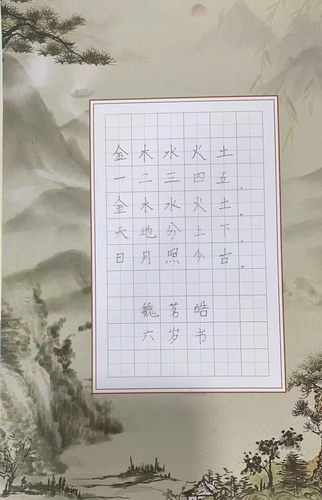 金木水火土
一二三四五，
金木水火土。
天地分上下，
日月照今古。
魏茗皓
六岁书